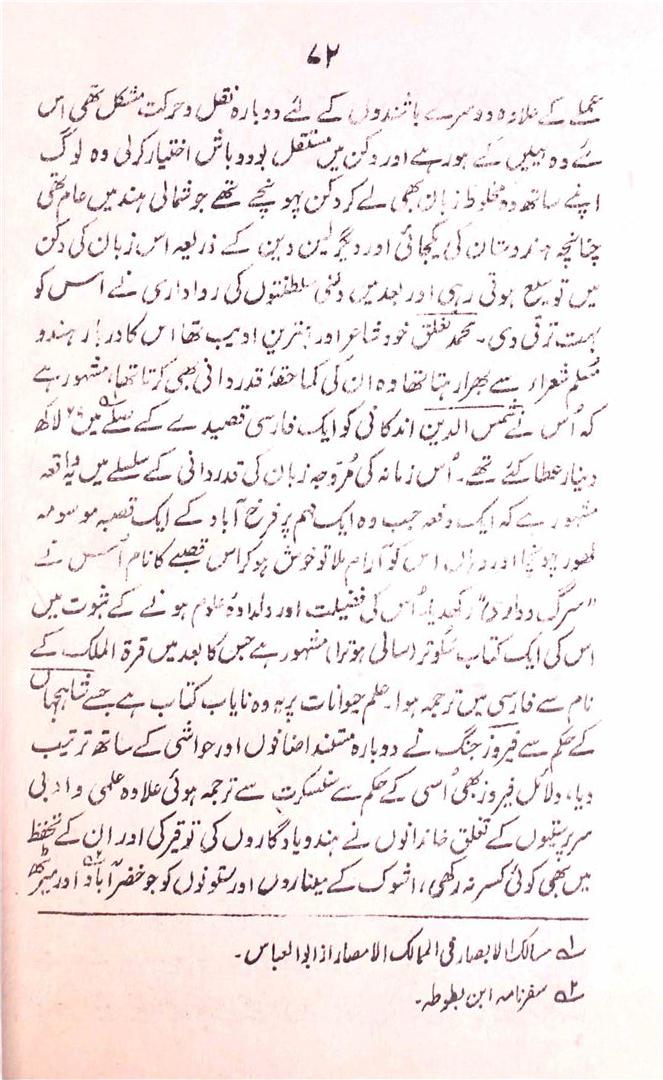 ۷۲
عملے کے علاوہ دوسرے باشندوں کے لئے دوبارہ نقل و حرکت مشکل تھی اس
لئے وہ یہیں کے ہو رہے اور دکن میں مستقل بود و باش اختیار کرلی وہ لوگ
اپنے ساتھ وہ مخلوط زبان بھی لے کر دکن پہونچے تھے جو شمالی ہند میں عام تھی
چنانچہ ہندوستان کی یکجائی اور دیگر لین دین کے ذریعہ اس زبان کی دکن
میں توسیع ہوتی رہی اور بعد میں دکنی سلطنتوں کی رواداری نے اس کو
بہت ترقی دی۔ محمد تغلق خود شاعر اور بہترین ادیب تھا اس کا دربار ہندو
مسلم شعراء سے بھرا رہتا تھا وہ ان کی کما حقہٗ قدردانی بھی کرتا تھا، مشہور ہے
کہ اُس نے شمس الدین اندکانی کو ایک فارسی قصیدے کے صلے میں ۱؎ لاکھ
دینار عطا کئے تھے۔ اُس زمانہ کی مُروّجہ زبان کی قدردانی کے سلسلے میں یہ واقعہ
مشہور ہے کہ ایک دفعہ جب وہ ایک مہم پر فرخ آباد کے ایک قصبہ موسومہ
پہونچا اور وہاں اس کو آرام ملا تو خوش ہو کر اس قصبے کا نام اُس نے
”سرگ دواری“ رکھدیا۔ اُس کی فضیلت اور دلدادہ علوم ہونے کے ثبوت میں
اس کی ایک کتاب سلوتر (سالی ہوترا) مشہور ہے جس کا بعد میں قرۃ الملک کے
نام سے فارسی میں ترجمہ ہوا۔ علم حیوانات پر یہ وہ نایاب کتاب ہے جسے شاہجہاں
کے حکم سے فیروز جنگ نے دوبارہ مستند اضافوں اور حواشی کے ساتھ ترتیب
دیا، دلائل فیروز بھی اُسی کے حکم سے سنسکرت سے ترجمہ ہوئی علاوہ علمی و ادبی
سرپرستیوں کے تغلق خاندانوں نے ہندو یادگاروں کی توقیر کی اور ان کے تحفظ
میں بھی کوئی کسر نہ رکھی، اشوک کے میناروں اور ستونوں کو جو خضر آباد ۲؎ اور میرٹھ
۱؎ مسالک الابصار فی الممالک الامصار از ابوالعباس۔
۲؎ سفرنامہ ابن بطوطہ۔